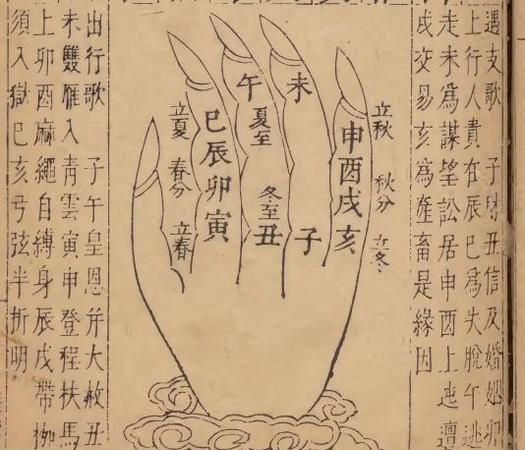 遇支歌 子丑信及婚姻
上行人貴在辰巳為失脫午逃
走未為謀望訟居申酉上迍邅
戌交易亥為產畜是緣因
立秋 秋分 立冬
申酉戌亥
未 子
午 夏至 冬至 丑
巳辰卯寅
立夏 春分 立春
出行歌 子午皇恩并大赦丑
未雙雁入青雲寅申登程扶馬
上卯酉麻繩自縛身辰戌帶枷
須入獄巳亥弓弦半折明